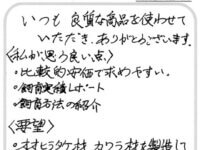 いつも 良質な商品を使わせて
いただき、ありがとうございます。
〈私が思う良い点〉
・比較的安価で求めやすい。
・飼育実績レポート
・飼育方法の紹介
〈要望〉
・オオヒラタケ材 カワラ材を製造して